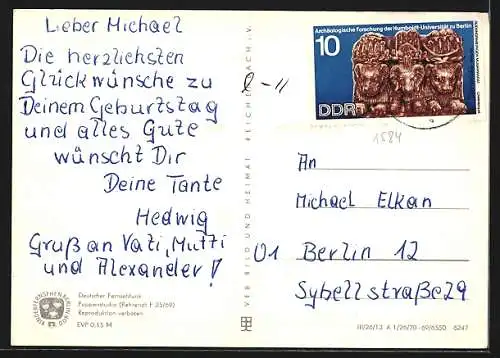 Lieber Michael
Die herzlichsten
Glückwünsche zu
Deinem Geburtstag
und alles Gute
wünscht Dir
Deine Tante
Hedwig
Gruß an Vati, Mutti
und Alexander!
KINDERFERNSEHEN
Deutscher Fernsehfunk
Puppenstudio (Refrenzst F 35/69)
Reproduktion verboten
EVP 0,15 M
VEB BILD UND HEIMAT REICHENBACH i. V.
Archäologische Forschung der Humboldt-Universität zu Berlin
10
DDR
1584
An
Michael Elkan
O1 Berlin 12
Sybelstraße 29
III/26/13 A 1/26/70 69/6550 6247